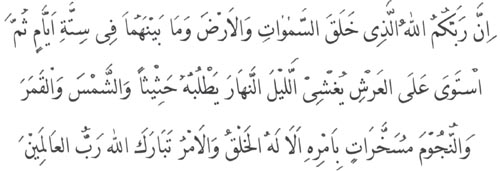 اِنَّ رَبَّكُمُ اللهُ الَّذِى خَلَقَ السَّمٰوَاتِ وَالْاَرْضَ وَمَا بَيْنَهُمَا فِى سِتَّةِ اَيَّامٍ ثُمَّ
اسْتَوَى عَلَى العَرْشِ يُغَشِّىْ الَّليْلَ النَّهَارَ يَطْلُبُهُ حَثِيْثاً وَالشَّمْسَ وَالْقَمَرَ
وَالنُّجُوْمَ مُسَخَّرَاتٍ بِاَمْرِهِ اَلَا لَهُ الْخَلْقُ وَالْاَمْرُ تَبَارَكَ اللهُ رَبُّ العَالَمِيْنَ